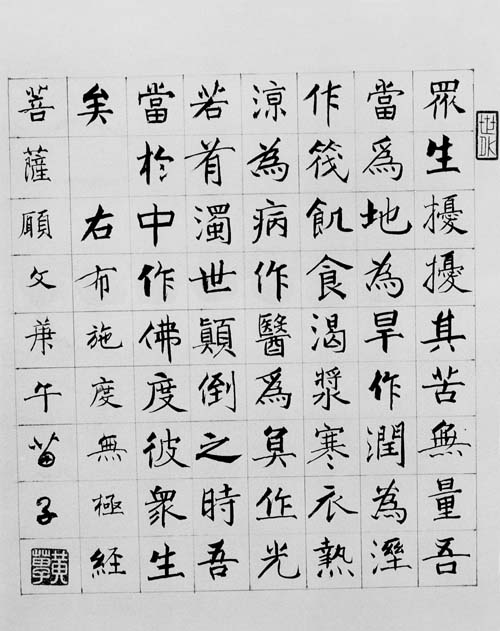 眾生擾擾其苦無量吾
當爲地為旱作潤為溼
作筏飢食渴漿寒衣熱
涼為病作醫爲冥作光
若有濁世顛倒之時吾
當於中作佛度彼衆生
矣 右布施度無極經
菩薩願文午苗子